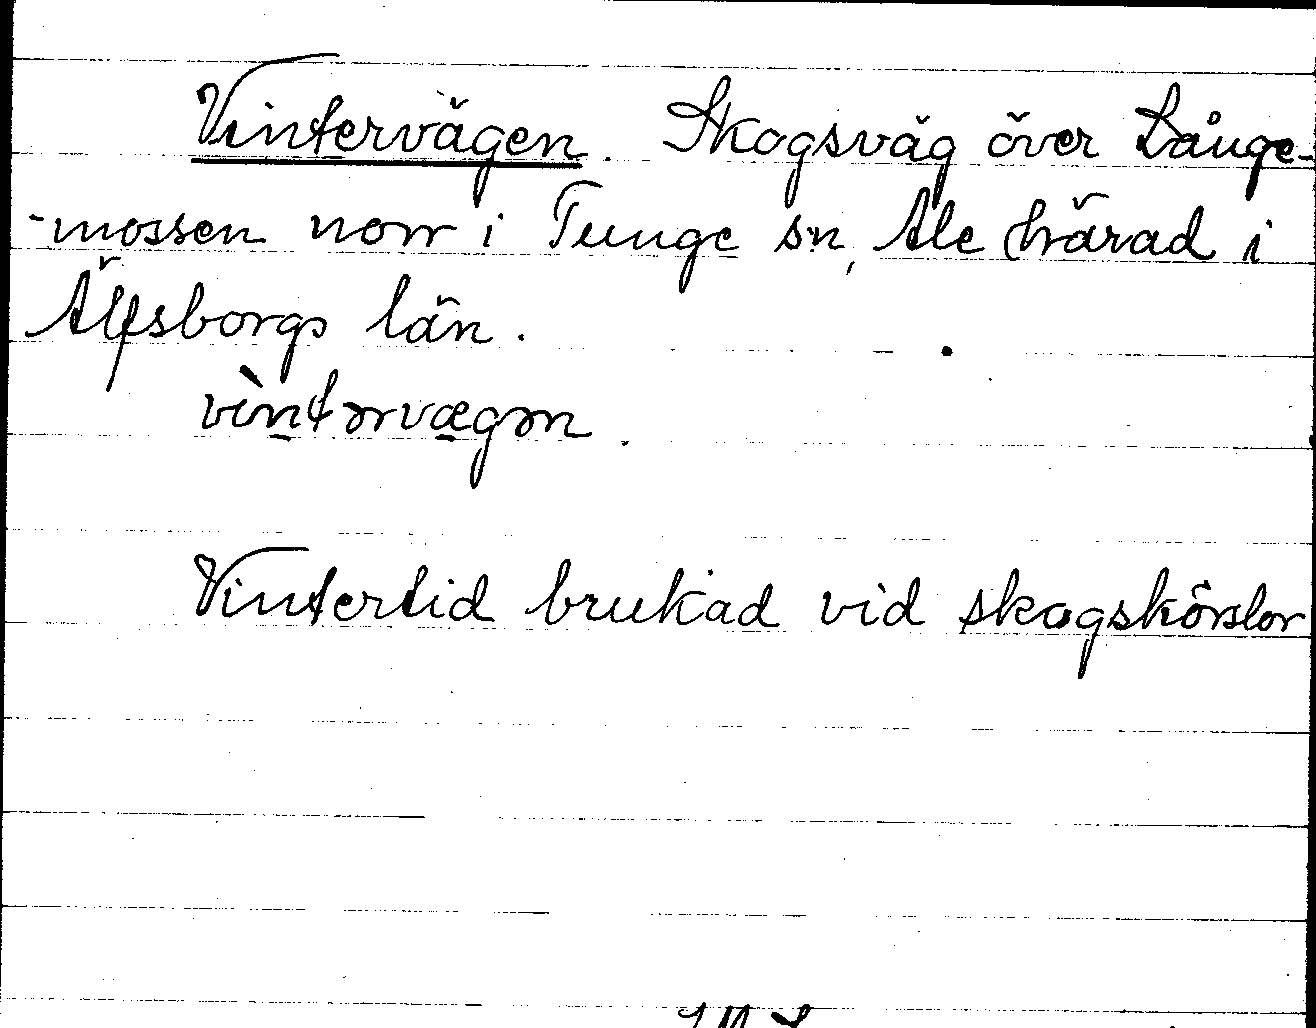 Vintervägen. Skogsväg över Långe-
-mossen norr i Tunge sn, Ale härad i
Älfsborgs län.
vìntərvægən.
Vintertid brukad vid skogskörslor